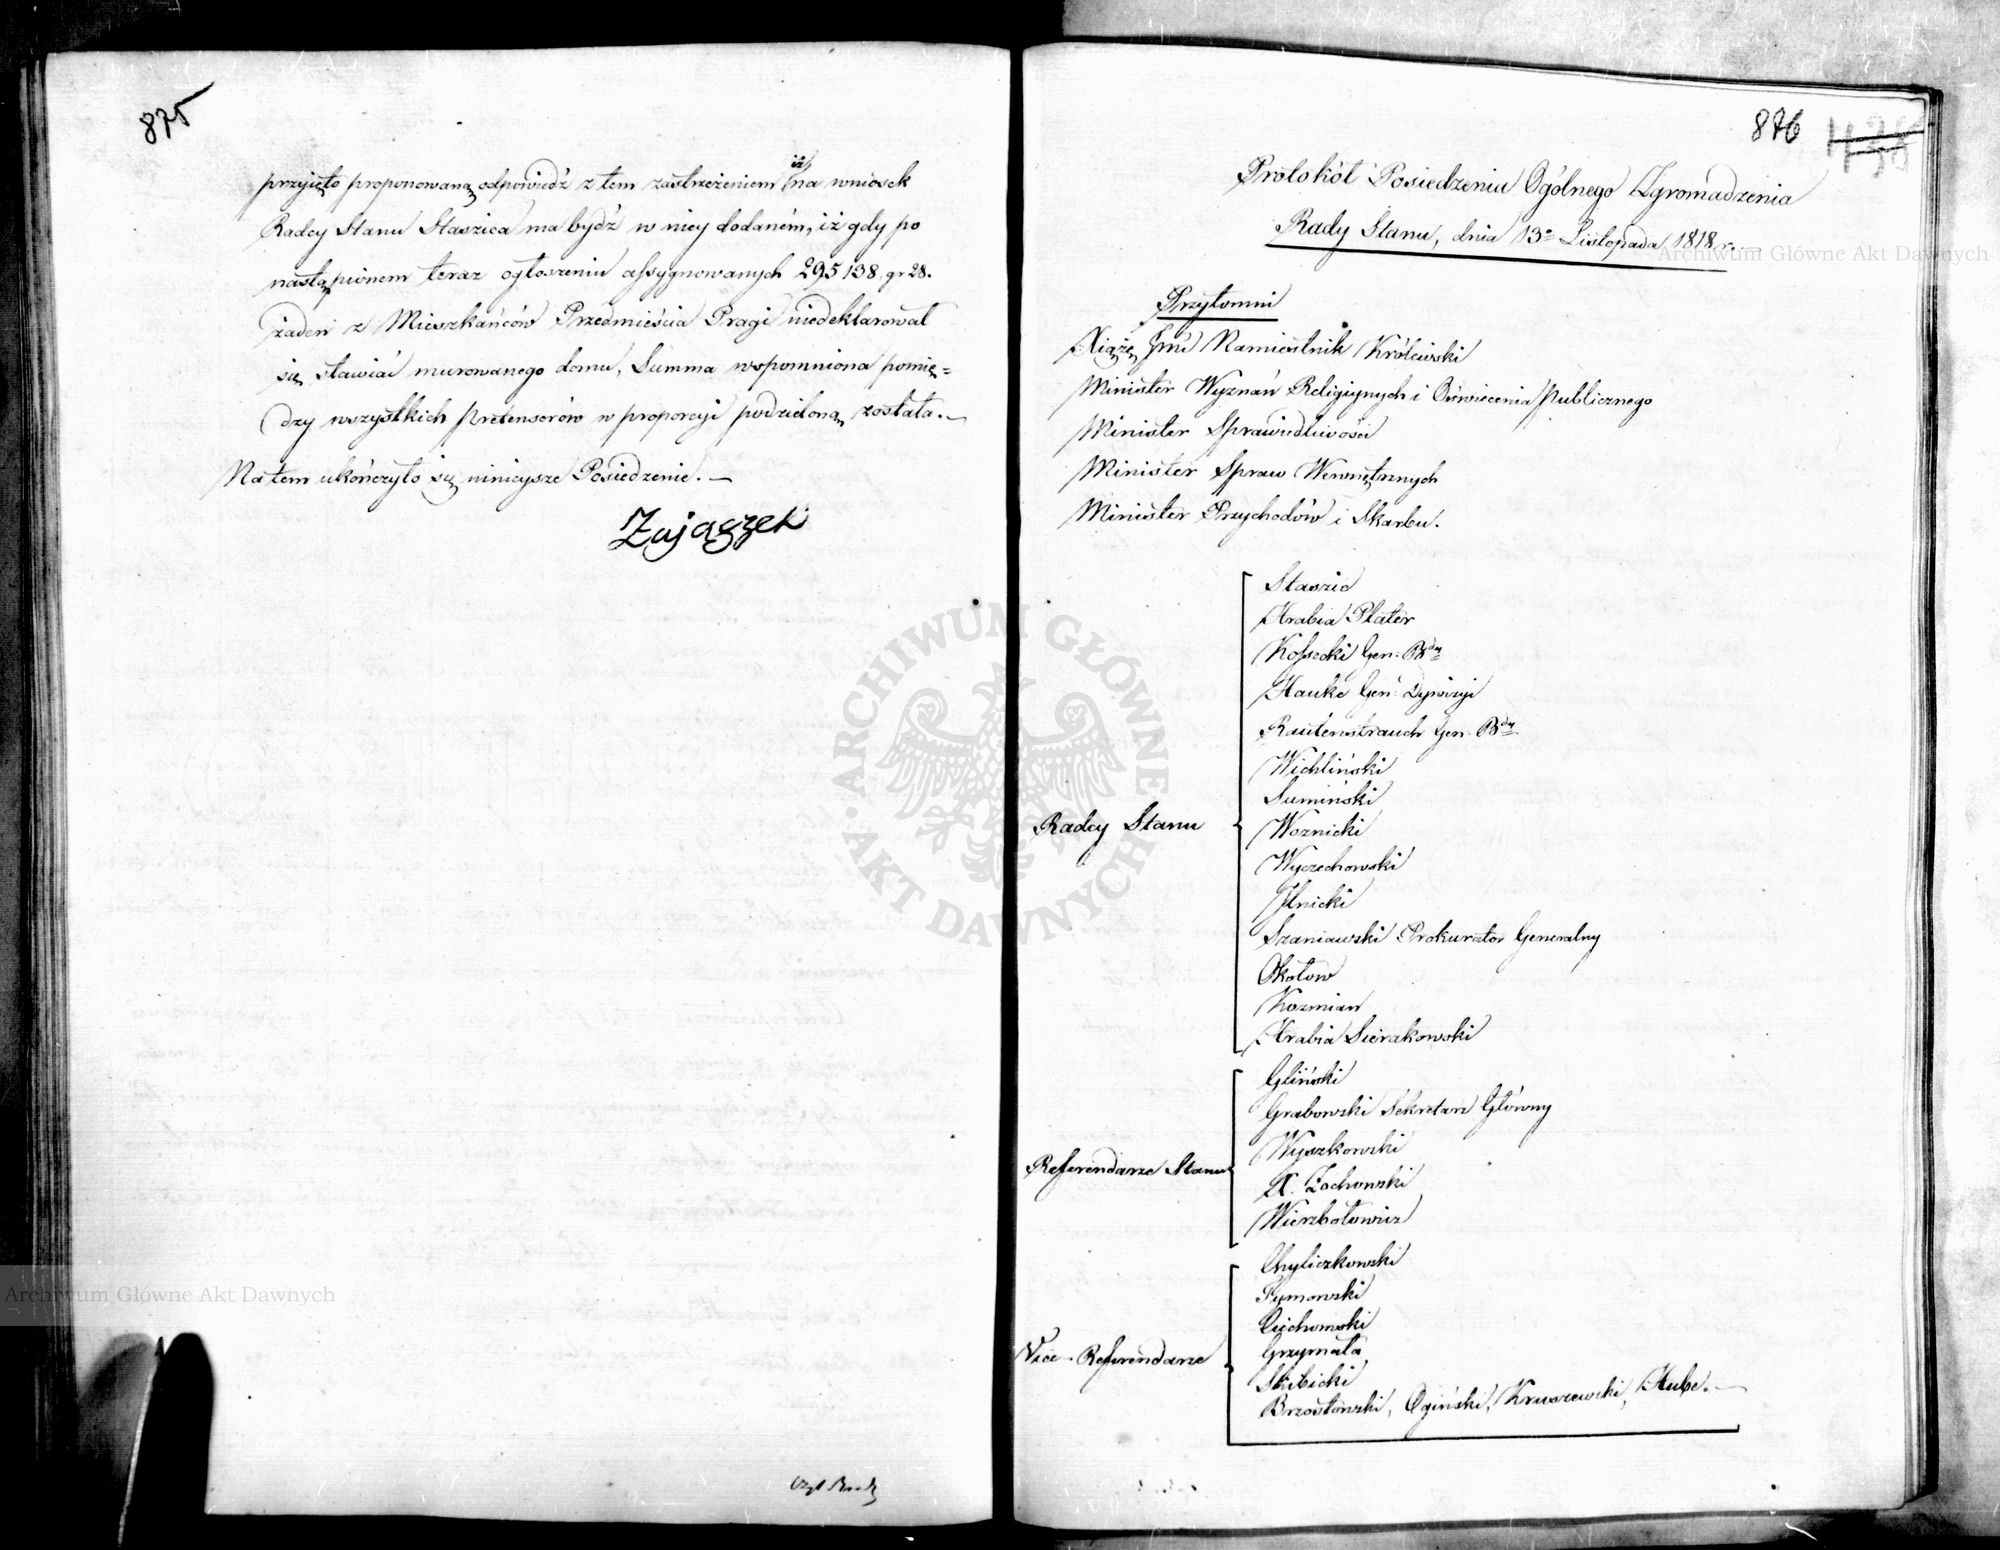 875
przyięto proponowaną odpowiedź z tem zastrzeżeniem iż na wniosek
Radcy Stanu Staszica ma bydź w niey dodaném, iż gdy po
nastąpionem teraz ogłoszeniu assygnowanych 295138 gr 28.
żaden z Mieszkańców Przedmieścia Pragi niedeklarował
się stawiać murowanego domu, Summa wspomniona pomię=
dzy wszystkich Pretensorów w proporcyi podzieloną została.—
Na tem ukończyło się ninieysze Posiedzenie.—
Zajączek
876
438
Protokół Posiedzenia Ogólnego Zgromadzenia
Rady Stanu, dnia 13º Listopada 1818 r.—
Przytomni
Xiążę Jmć Namiestnik Królewski
Minister Wyznań Religiynych i Oświecenia Publicznego
Minister Sprawiedliwości
Minister Spraw Wewnętrznych
Minister Przychodów i Skarbu.
Radcy Stanu
Staszic
Hrabia Plater
Kossecki Gen: Bdy
Hauke Gen: Dywizyi
Rautenstrauch Gen: Bdy
Wichliński
Sumiński
Woznicki
Wyczechowski
Ilnicki
Szaniawski Prokurator Generalny
Okołow
Kozmian
Hrabia Sierakowski
Referendarze Stanu
Gliński
Grabowski Sekretarz Główny
Wyszkowski
X. Żochowski
Wierzbołowicz
Vice-Referendarze
Chyliczkowski
Tymowski
Ciechomski
Grzymała
Skibicki
Brzostowski, Ogiński, Kruszewski, Hube.—
Archiwum Główne Akt Dawnych
ARCHIWUM GŁÓWNE AKT DAWNYCH
Archiwum Główne Akt Dawnych